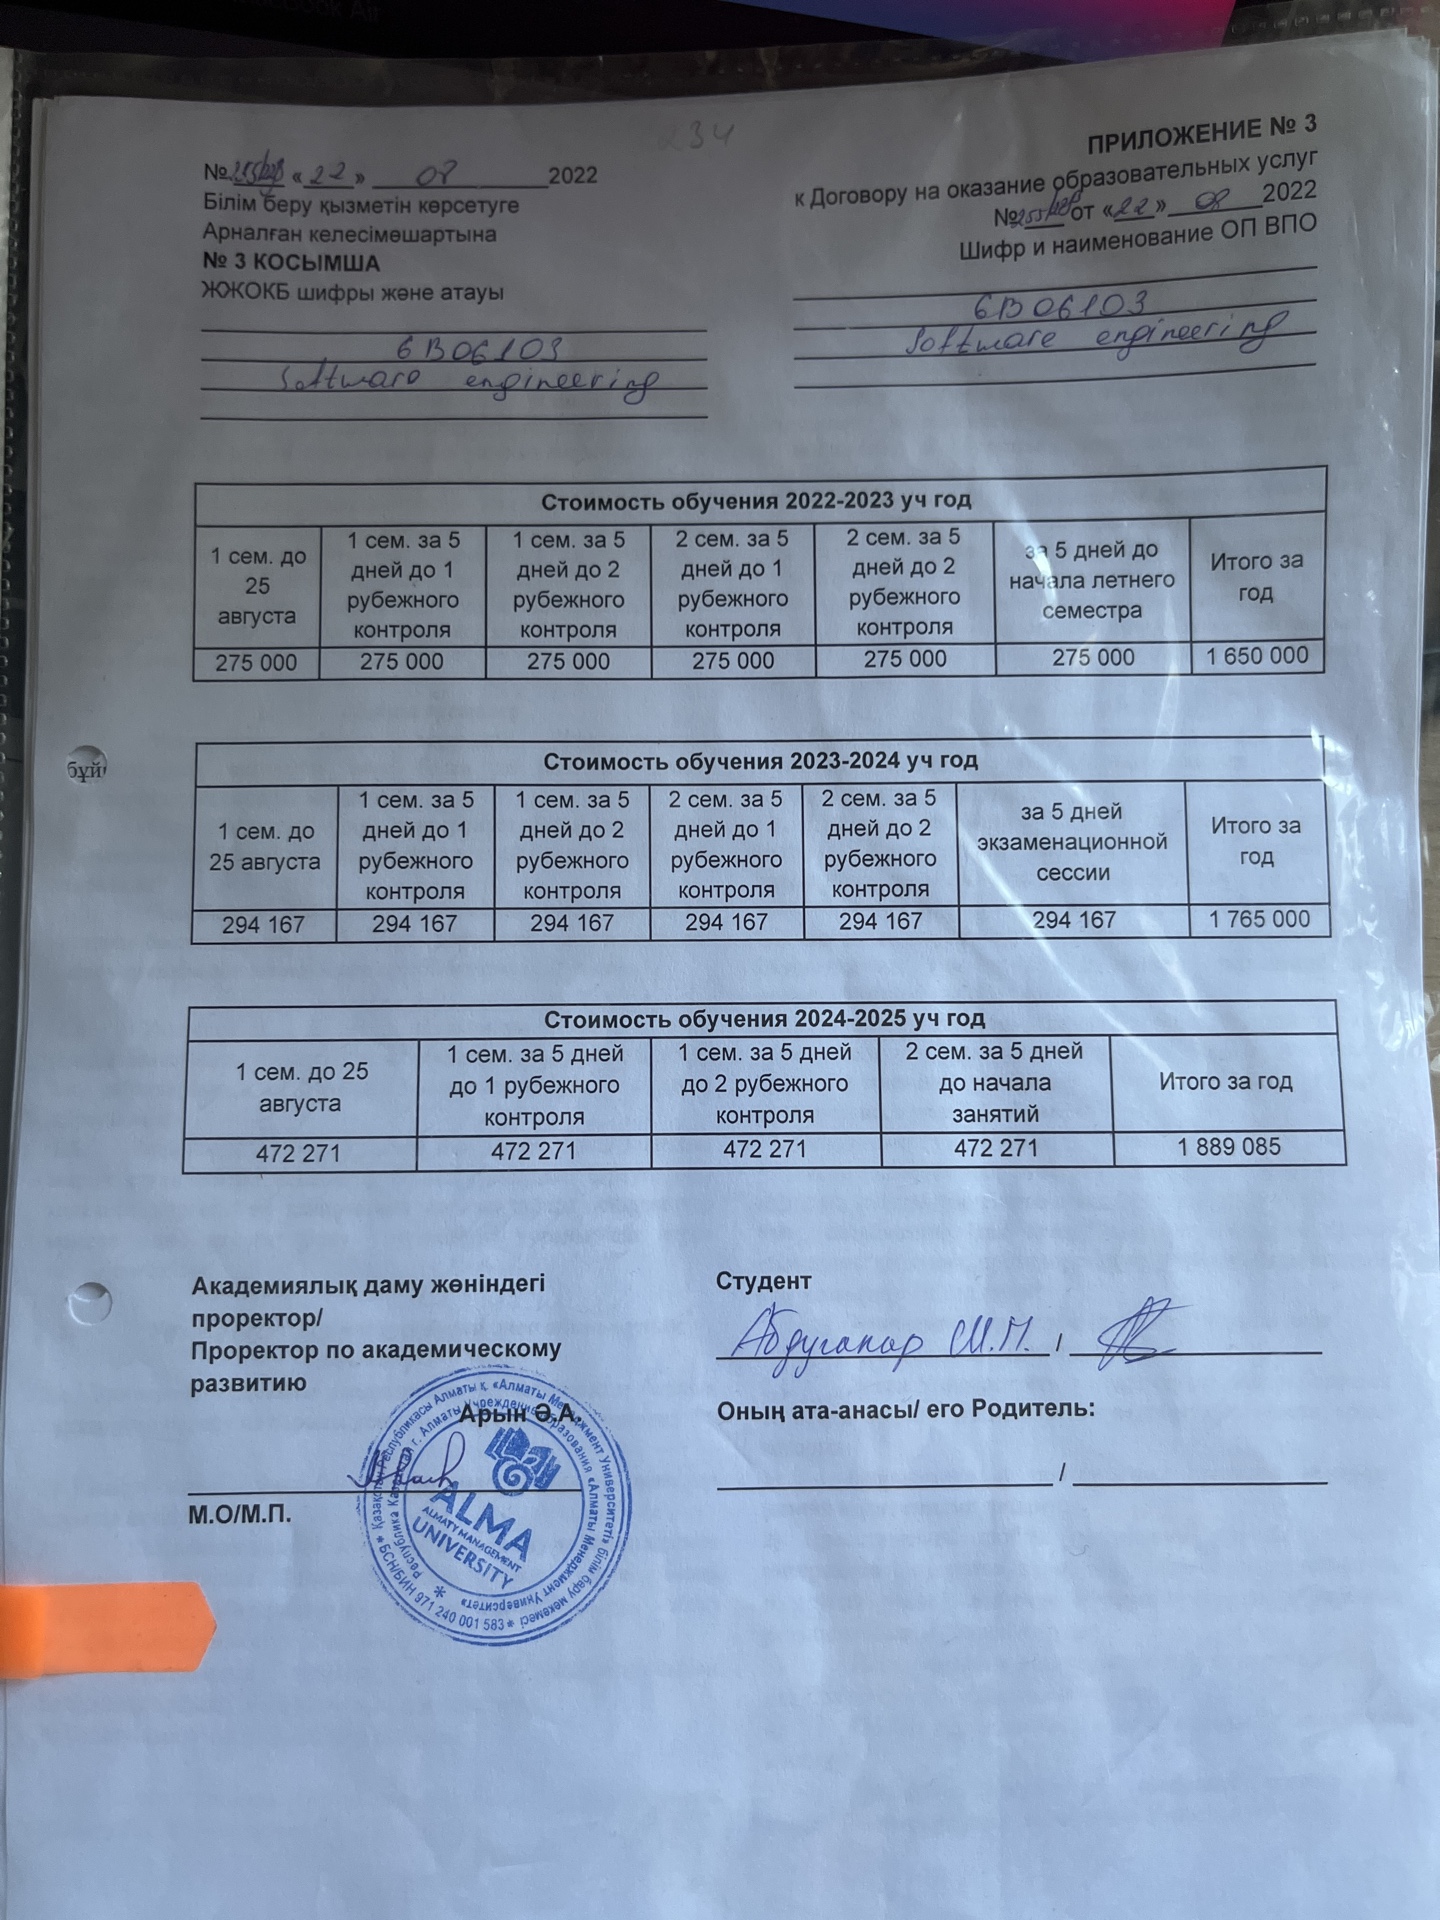 234
№ «22» 08 2022
Білім беру қызметін көрсетуге
Арналған келесімөшартына
№ 3 КОСЫМША
ЖЖОКБ шифры және атауы
6B06103
Software engineering
ПРИЛОЖЕНИЕ № 3
к Договору на оказание образовательных услуг
№ от «22» 08 2022
Шифр и наименование ОП ВПО
6B06103
Software engineering
Стоимость обучения 2022-2023 уч год
1 сем. до 25 августа 1 сем. за 5 дней до 1 рубежного контроля 1 сем. за 5 дней до 2 рубежного контроля 2 сем. за 5 дней до 1 рубежного контроля 2 сем. за 5 дней до 2 рубежного контроля за 5 дней до начала летнего семестра Итого за год
275 000 275 000 275 000 275 000 275 000 275 000 1 650 000
бұй
Стоимость обучения 2023-2024 уч год
1 сем. до 25 августа 1 сем. за 5 дней до 1 рубежного контроля 1 сем. за 5 дней до 2 рубежного контроля 2 сем. за 5 дней до 1 рубежного контроля 2 сем. за 5 дней до 2 рубежного контроля за 5 дней экзаменационной сессии Итого за год
294 167 294 167 294 167 294 167 294 167 294 167 1 765 000
Стоимость обучения 2024-2025 уч год
1 сем. до 25 августа 1 сем. за 5 дней до 1 рубежного контроля 1 сем. за 5 дней до 2 рубежного контроля 2 сем. за 5 дней до начала занятий Итого за год
472 271 472 271 472 271 472 271 1 889 085
Академиялық даму жөніндегі
проректор/
Проректор по академическому
развитию
Арын Ә.А.
М.О/М.П.
Студент
Абдугапар М.П. /
Оның ата-анасы/ его Родитель:
/
Қазақстан Республикасы Алматы қ. «Алматы Менеджмент Университеті» білім беру мекемесі * БСН/БИН 971 240 001 583 *
Республика Казахстан г. Алматы Учреждение образования «Алматы Менеджмент Университет» *
ALMA
ALMATY MANAGEMENT
UNIVERSITY